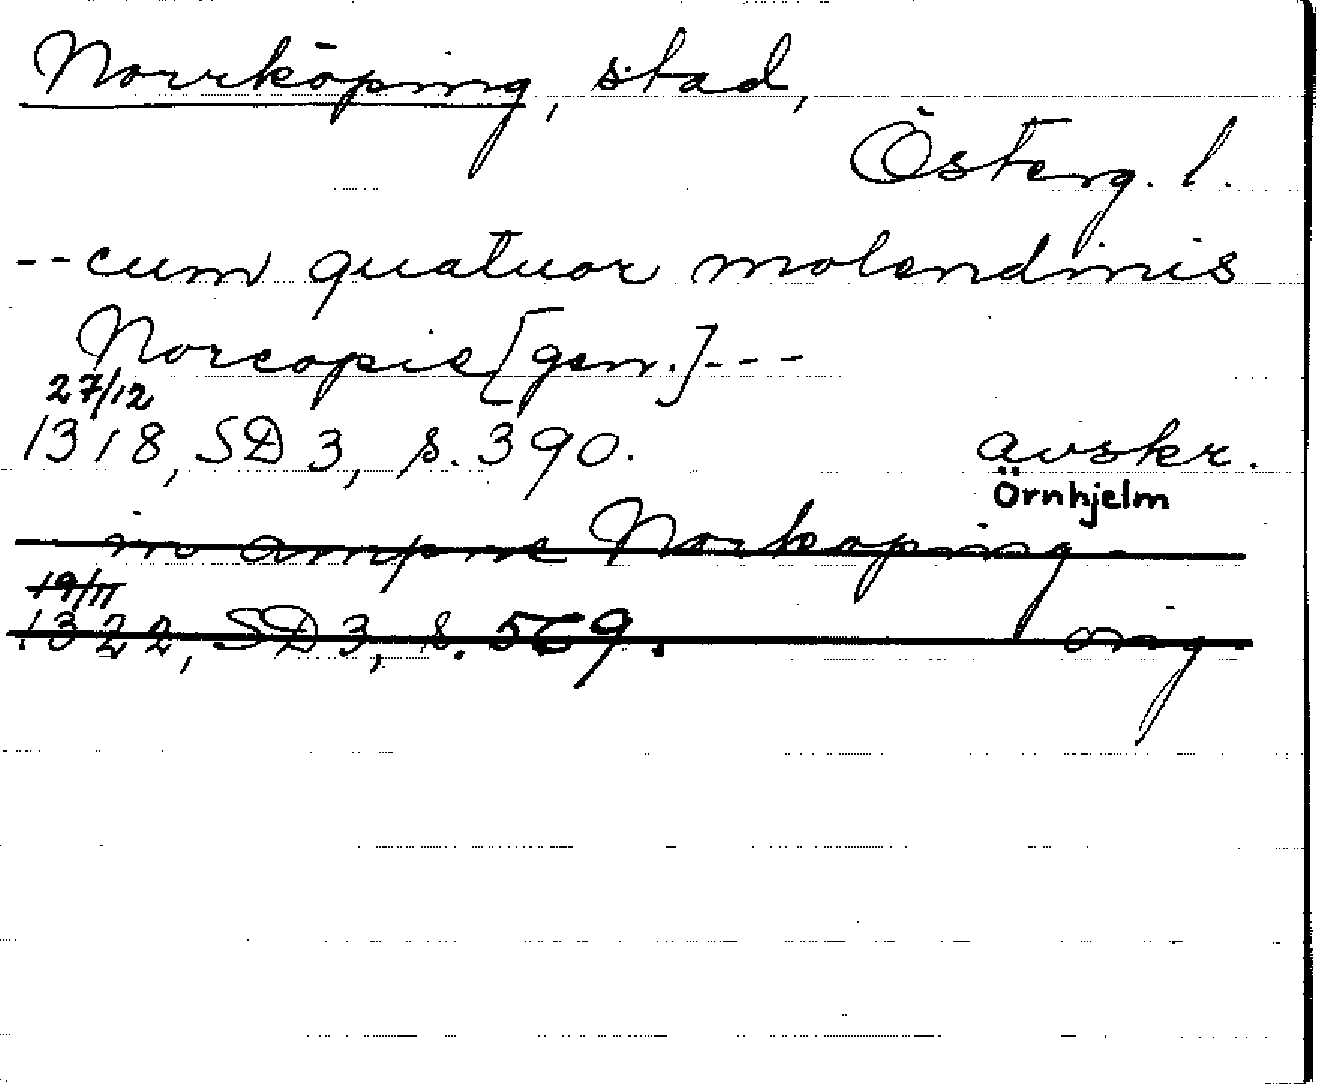 Norrköping, stad,
Österg. l.
--cum quatuor molendinis
Norcopie [gen.]---
27/12
1318, SD 3, s. 390. avskr.
Örnhjelm
in Norkoping
19/11
1322, SD 3, s. 569. orig.